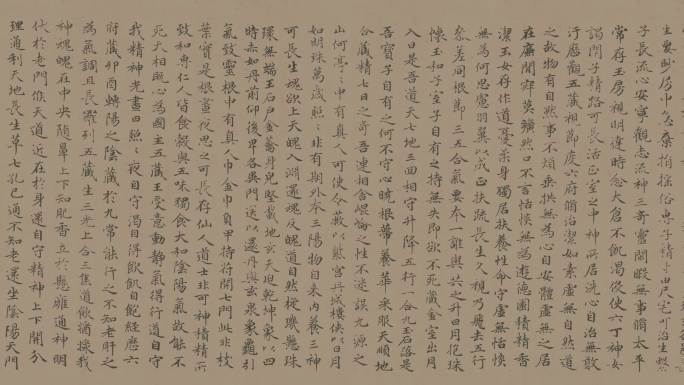 生要眇房中急棄捐搖俗專子精寸田尺宅可治生繫
子長流心安寧觀志流神三奇靈閒暇無事脩太平
常存玉房視明達時念大倉不飢渴役使六丁神女
謁閉子精路可長活正室之中神所居洗心自治無敢
汙歷觀五藏視節度六府脩治潔如素虛無自然道
之故物有自然事不煩垂拱無為心自安體虛無之居
在廉閒寂寞曠然口不言恬惔無為遊德園積精香
潔玉女存作道憂柔身獨居扶養性命守虛無恬惔
無為何思慮羽翼以成正扶疏長生久視乃飛去五行
參差同根節三五合氣要本一誰與共之升日月抱珠
懷玉和子室子自有之持無失即欲不死藏金室出月
入日是吾道天七地三回相守升降五行一合九玉石落是
吾寶子自有之何不守心曉根蔕養華采服天順地
合藏精七日之奇吾連相舍崐崘之性不迷誤九源之
山何亭亭中有真人可使令蔽以紫宮丹城樓俠以日月
如明珠萬歲照照非有期外本三陽物自來內養三神
可長生魂欲上天魄入淵還魂反魄道自然琁璣懸珠
環無端玉石戶金籥身完堅載地玄天迫乾坤象以四
時赤如丹前仰後卑各異門送以還丹與玄泉象龜引
氣致靈根中有真人巾金巾負甲持符開七門此非枝
葉實是根晝夜思之可長存仙人道士非可神積精所
致和專仁人皆食穀與五味獨食大和陰陽氣故能不
死天相既心為國主五藏王受意動靜氣得行道自守
我精神光晝日照照夜自守渴自得飲飢自飽經歷六
府藏卯酉轉陽之陰藏於九常能行之不知老肝之
為氣調且長羅列五藏生三光上合三焦道飲醬漿我
神魂魄在中央隨鼻上下知肥香立於懸雍通神明
伏於老門候天道近在於身還自守精神上下開分
理通利天地長生草七孔已通不知老還坐陰陽天門